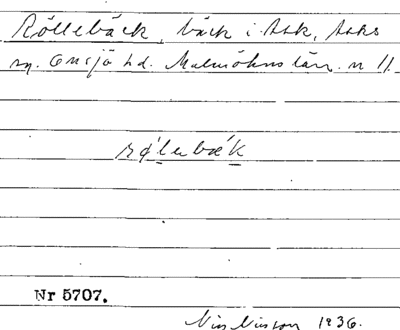 Röllebäck, bäck i Ask, Asks
sn. Onsjö hd. Malmöhus län. n 11.
rǿlebæ´k
Nr 5707.
Nils Nilsson 1936.